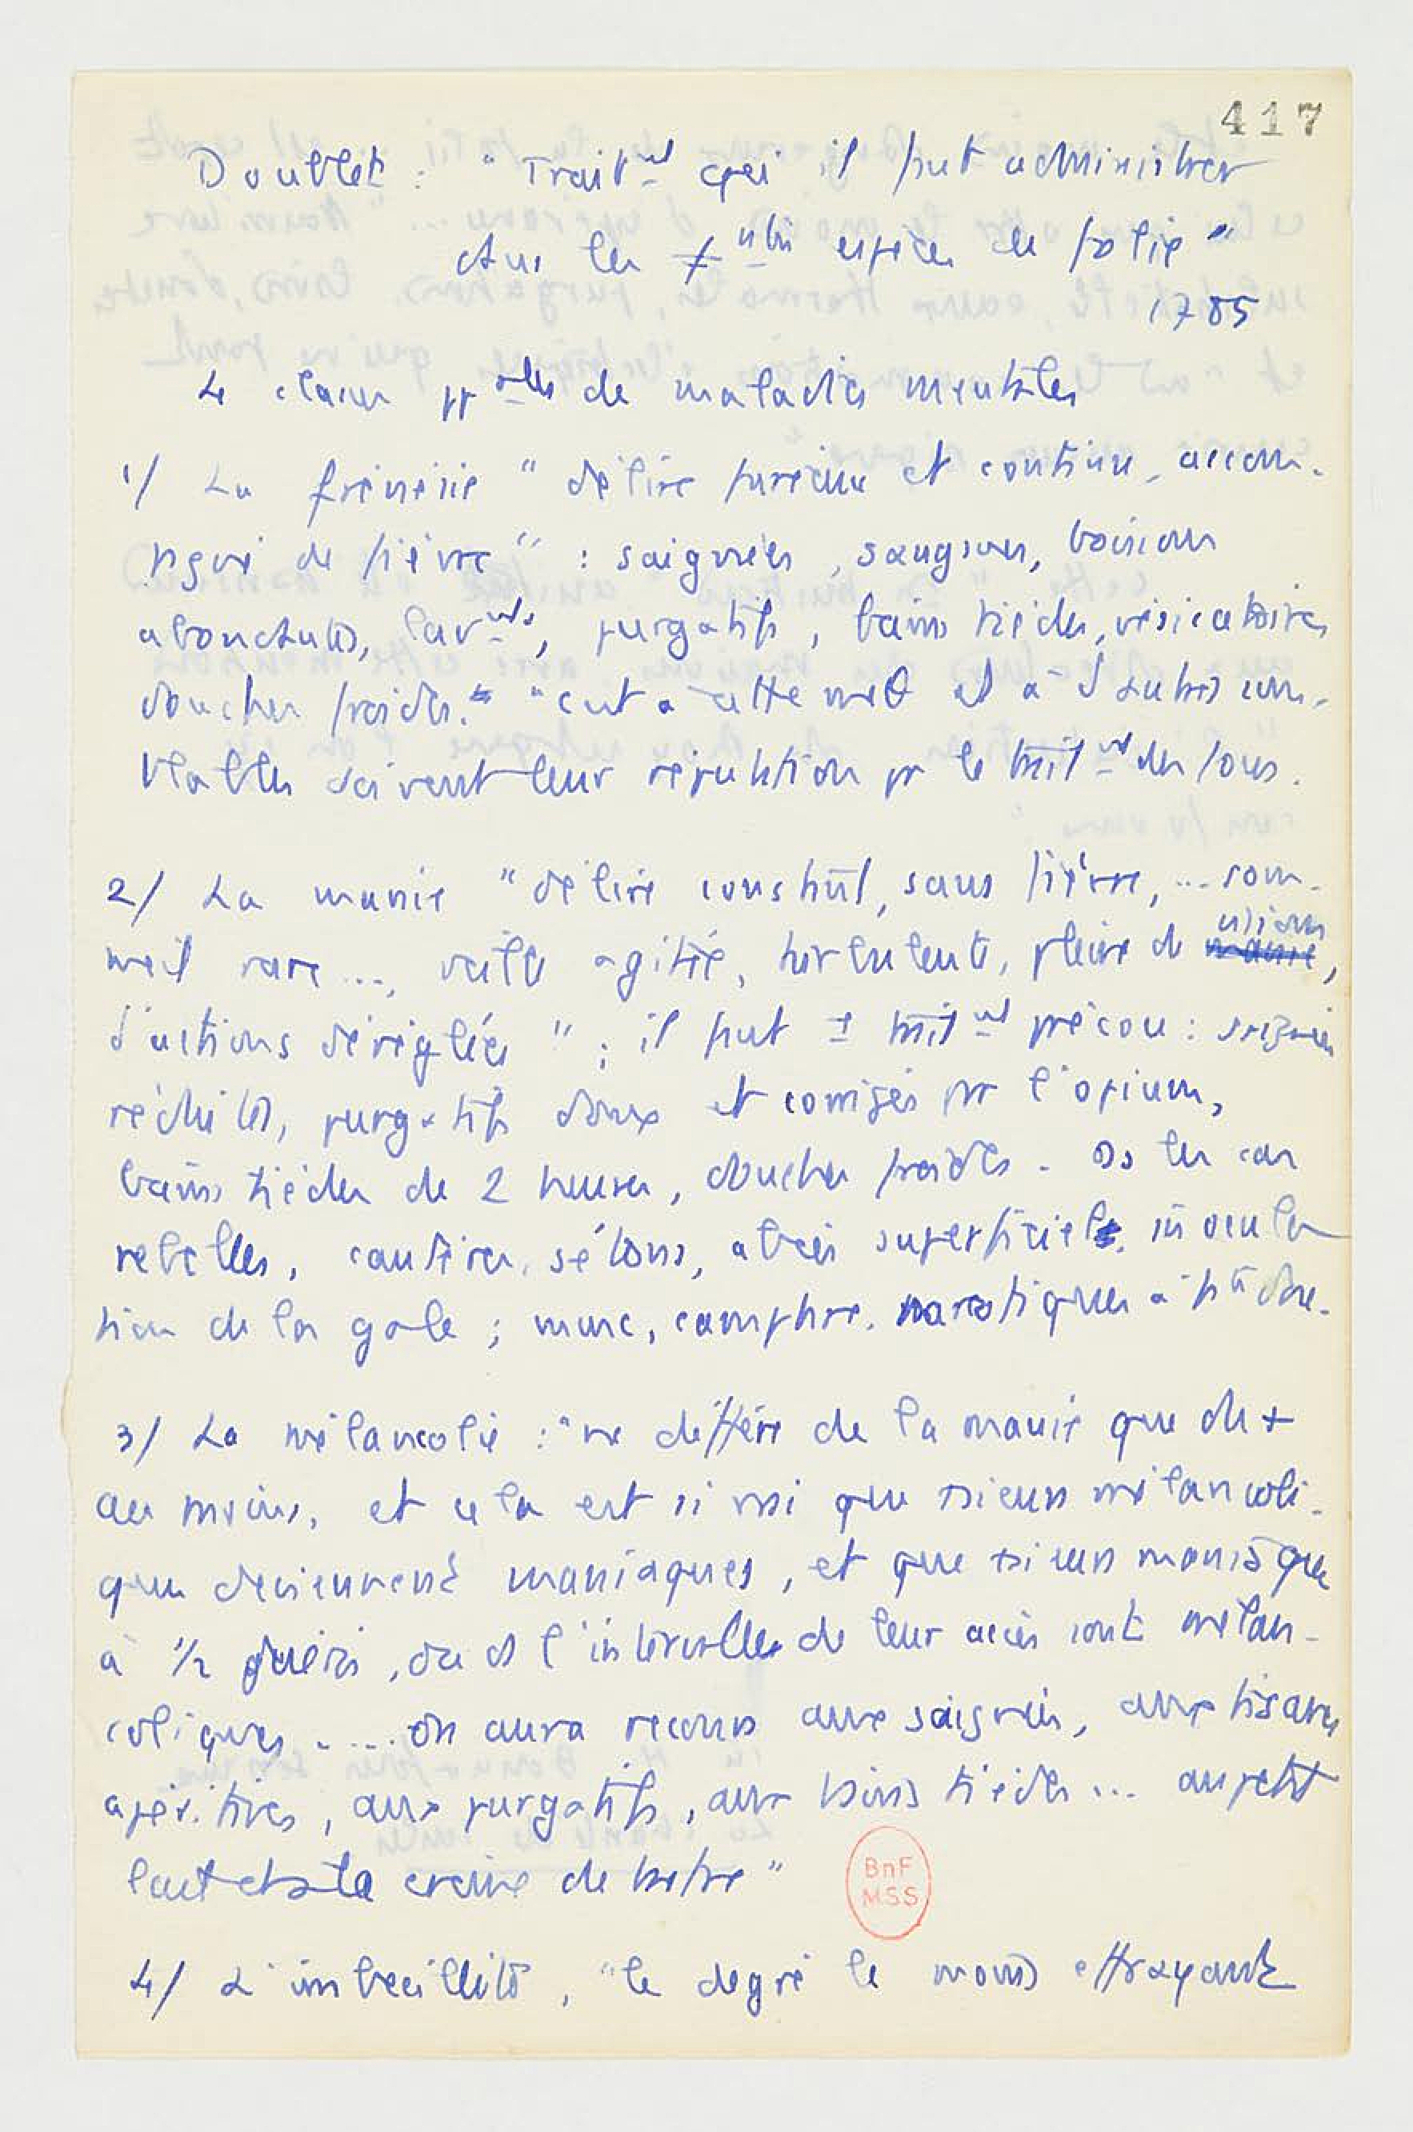 417
Doublet : "Trait^nt qu'il faut administrer
dans les ≠^ntes espèces de folie"
1785
4 classes pp^ales de maladies mentales
1/ La frénésie "délire furieux et continu, accom-
pagné de fièvre" : saignées, sangsues, boissons
abondantes, lav^nts, purgatifs, bains tièdes, vésicatoires
douches froides. "c'est à cette mél et à d'autres sem-
blables doivent leur réputation pr le trait^nt des fous.
2/ La manie "délire constant, sans fièvre, ... som-
meil rare..., veille agitée, turbulente, pleine de visions,
d'actions déréglées" ; il faut 1 trait^nt précoce : saignées
réduites, purgatifs doux et corrigés pr l'opium,
bains tièdes de 2 heures, douches froides. Ds les cas
rebelles, cautères, sétons, abcès superficiels, inocula
tion de la gale ; musc, camphre, narcotiques à pte dose.
3/ La mélancolie : "ne diffère de la manie que du +
au moins, et cela est si vrai que plsieurs mélancoli-
ques deviennent maniaques, et que plsieurs maniaques
à 1/2 guéris, ou ds l'intervalle de leur accès sont mélan-
coliques ..... on aura recours aux saignées, aux tisanes
apéritives, aux purgatifs, aux bains tièdes ... au petit
lait et à la crème de tartre"
BnF
MSS
4/ L'imbécillité, "le degré le moins effrayant